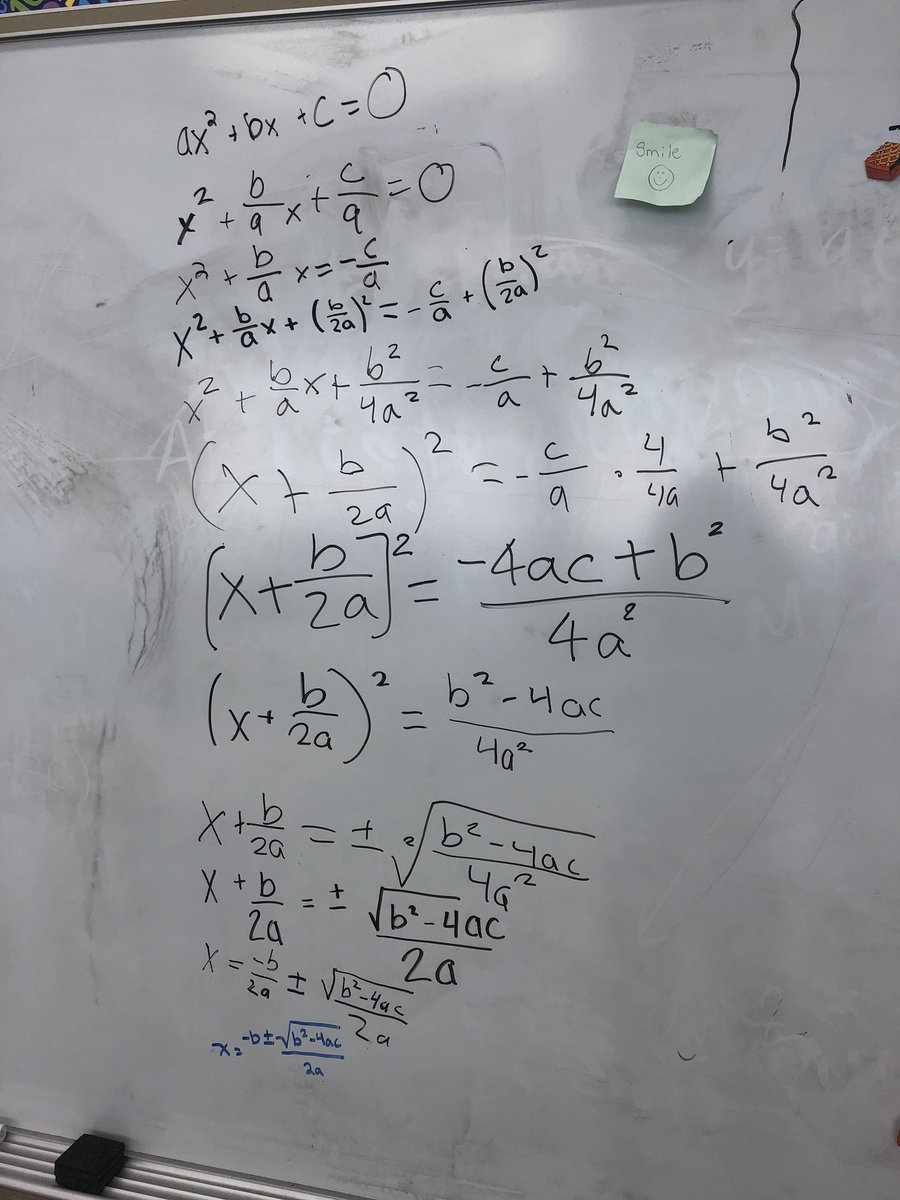 ax² + bx + c = 0
Smile
x² + b/a x + c/a = 0
x² + b/a x = -c/a
x² + b/a x + (b/2a)² = - c/a + (b/2a)²
x² + b/a x + b²/4a² = - c/a + b²/4a²
(x + b/2a)² = - c/a · 4/4a + b²/4a²
[x + b/2a]² = -4ac + b²/4a²
(x + b/2a)² = b² - 4ac/4a²
x + b/2a = ± ²√b² - 4ac/4a²
x + b/2a = ± √b² - 4ac/2a
x = -b/2a ± √b² - 4ac/2a
x = -b ± √b² - 4ac/2a